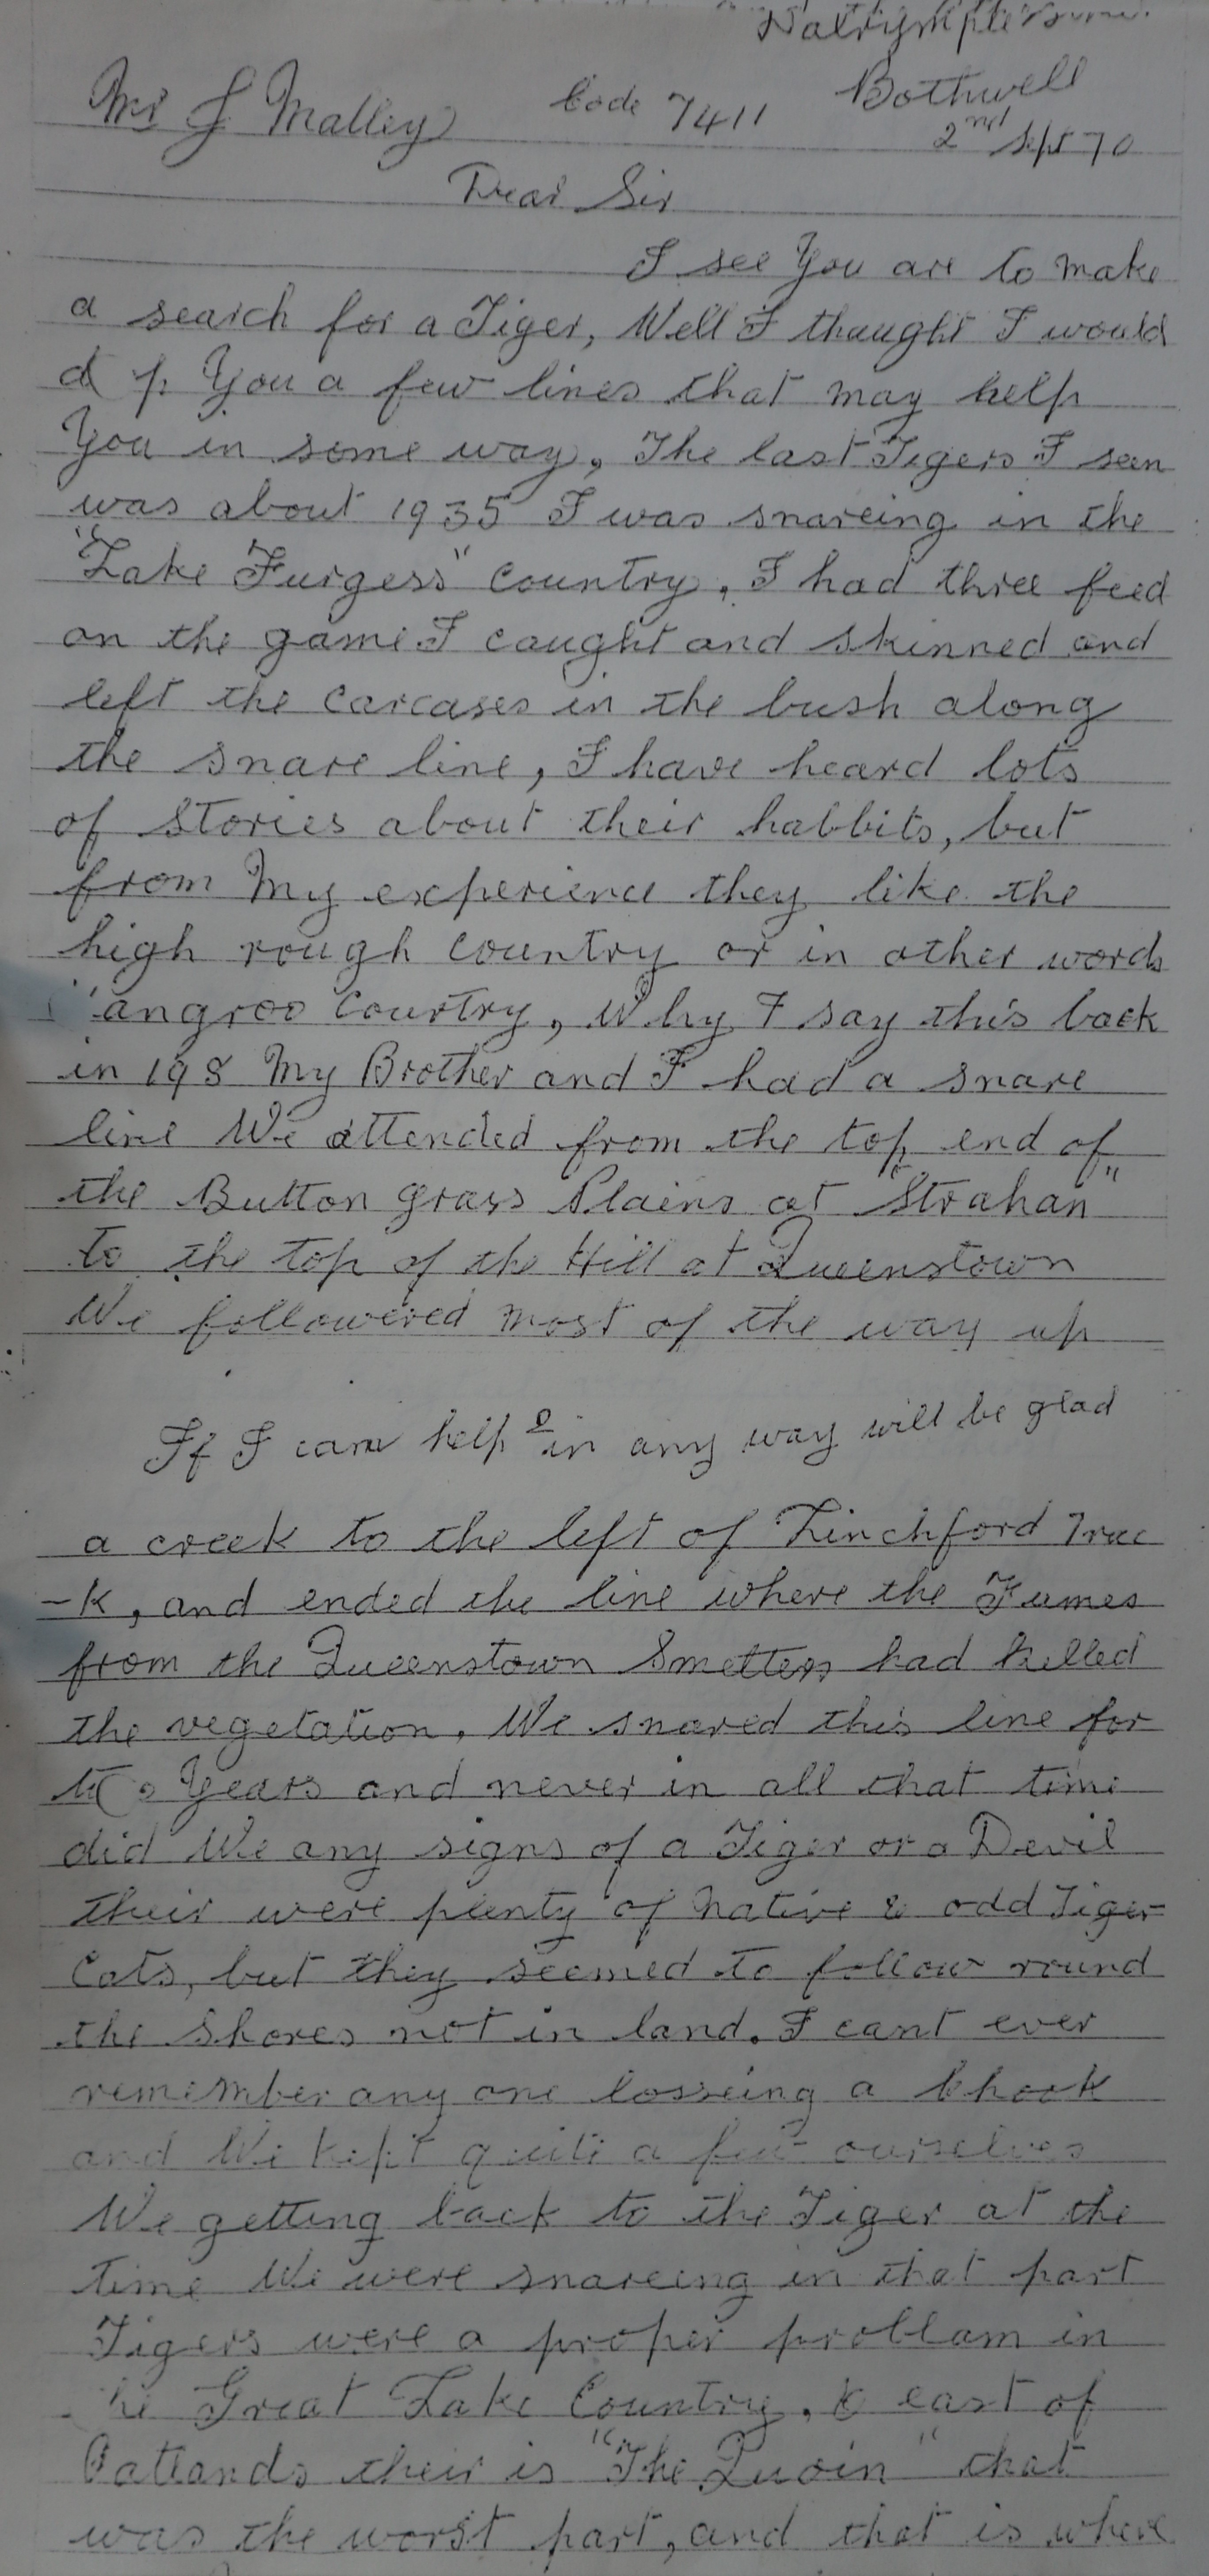 Mr J Malley Code 7411 Bothwell
2nd Sept 70
Dear Sir
I see You are to make
a search for a Tiger, Well I thought I would
d p You a few lines that may help
You in some way, The last Tigers I seen
was about 1935 I was snareing in the
"Lake Furgess" Country, I had three feed
on the game I caught and skinned and
left the carcases in the bush along
the snare line, I have heard lots
of stories about their habbits, but
from My experience they like the
high rough country or in other words
angroo Courtry, Why I say this back
in 198 My Brother and I had a snare
line We attended from the top end of
the Button grass Plains at "Strahan"
to the top of the Hill at Queenstown
We followered most of the way up
If I can help in any way will be glad
a creek to the left of Linchford Trac
-k, and ended the line where the Fumes
from the Queenstown Smelters had killed
the vegetation, We snared this line for
Years and never in all that time
did We any signs of a Tiger or a Devil
their were plenty of Native & odd Tiger
Cats, but they seemed to follow round
the shores not in land. I cant ever
remember any one losseing a Chook
and We kept quite a few ourselves
We getting back to the Tiger at the
time We were snareing in that part
Tigers were a proper problam in
he Great Lake Country, & east of
Oatlands their is "The Quoin" that
was the worst part, and that is where